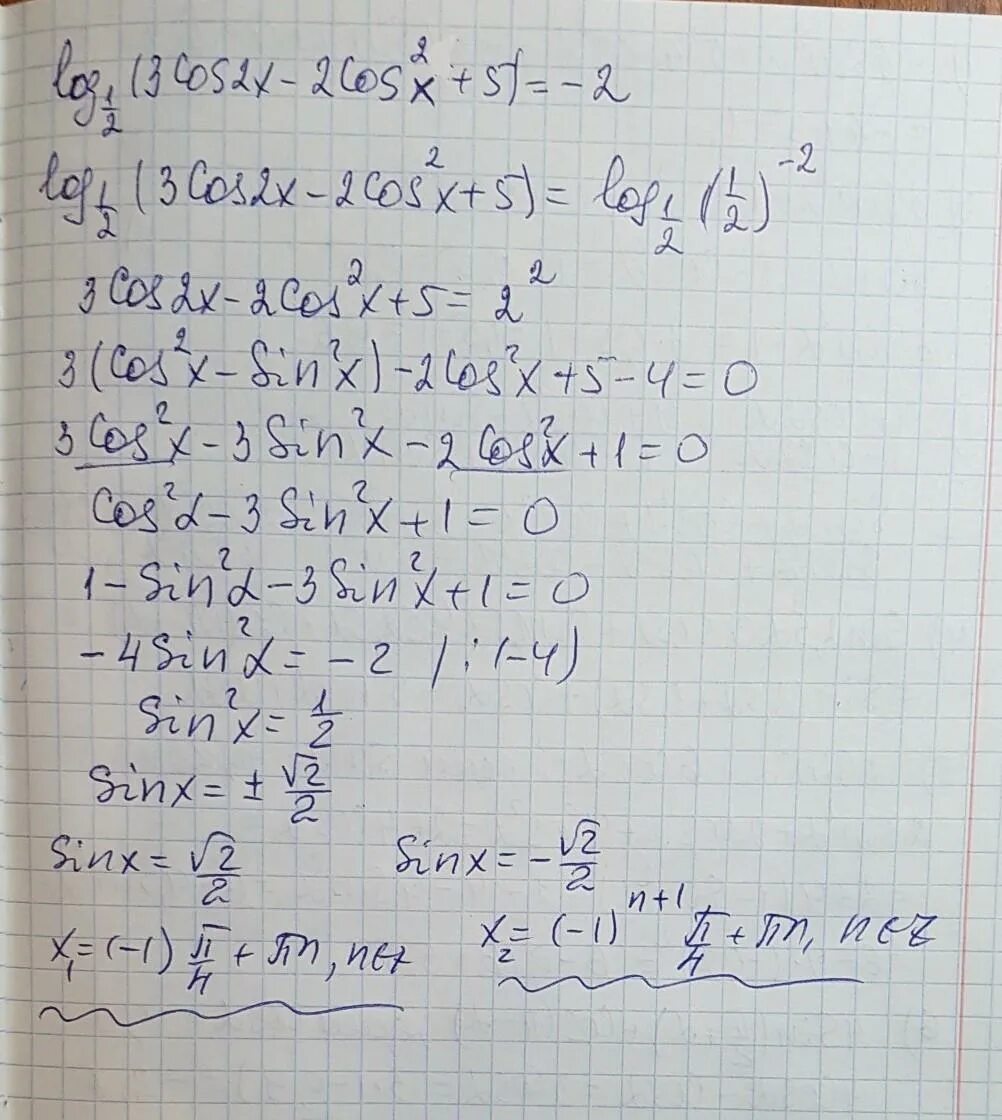 log_{1/2} (3Cos2x - 2Cos²x + 5) = -2
log_{1/2} (3Cos2x - 2Cos²x + 5) = log_{1/2} (1/2)^{-2}
3Cos2x - 2Cos²x + 5 = 2²
3(Cos²x - Sin²x) - 2Cos²x + 5 - 4 = 0
3Cos²x - 3Sin²x - 2Cos²x + 1 = 0
Cos²α - 3Sin²x + 1 = 0
1 - Sin²α - 3Sin²x + 1 = 0
-4Sin²α = -2 /:(-4)
Sin²x = 1/2
Sinx = ± √2/2
Sinx = √2/2 Sinx = -√2/2
x₁ = (-1) π/4 + πn, n∈z x₂ = (-1)^{n+1} π/4 + πn, n∈z